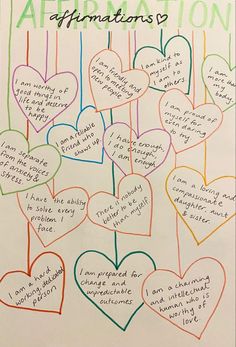 AFFIRMATION
affirmations
I am worthy of
good things in
life and deserve
to be
happy.
I am friendly and
open to meeting
new
people.
I am kind to
myself as
I am
to others.
I am
more than
my
body.
I am a reliable
friend who
shows up
I have enough,
I do enough,
I am
enough.
I am proud of
myself for
even daring
to try
I am separate
from the voices
of anxiety &
stress.
I have the ability
to solve every
problem I
face.
There is nobody
better to be
than myself.
I am a loving and
compassionate
daughter aunt
& sister.
I am a hard
working, dedicated
person
I am prepared for
change and
unpredictable
outcomes.
I am a charming
and intellectual
human who is
worthy of
love.